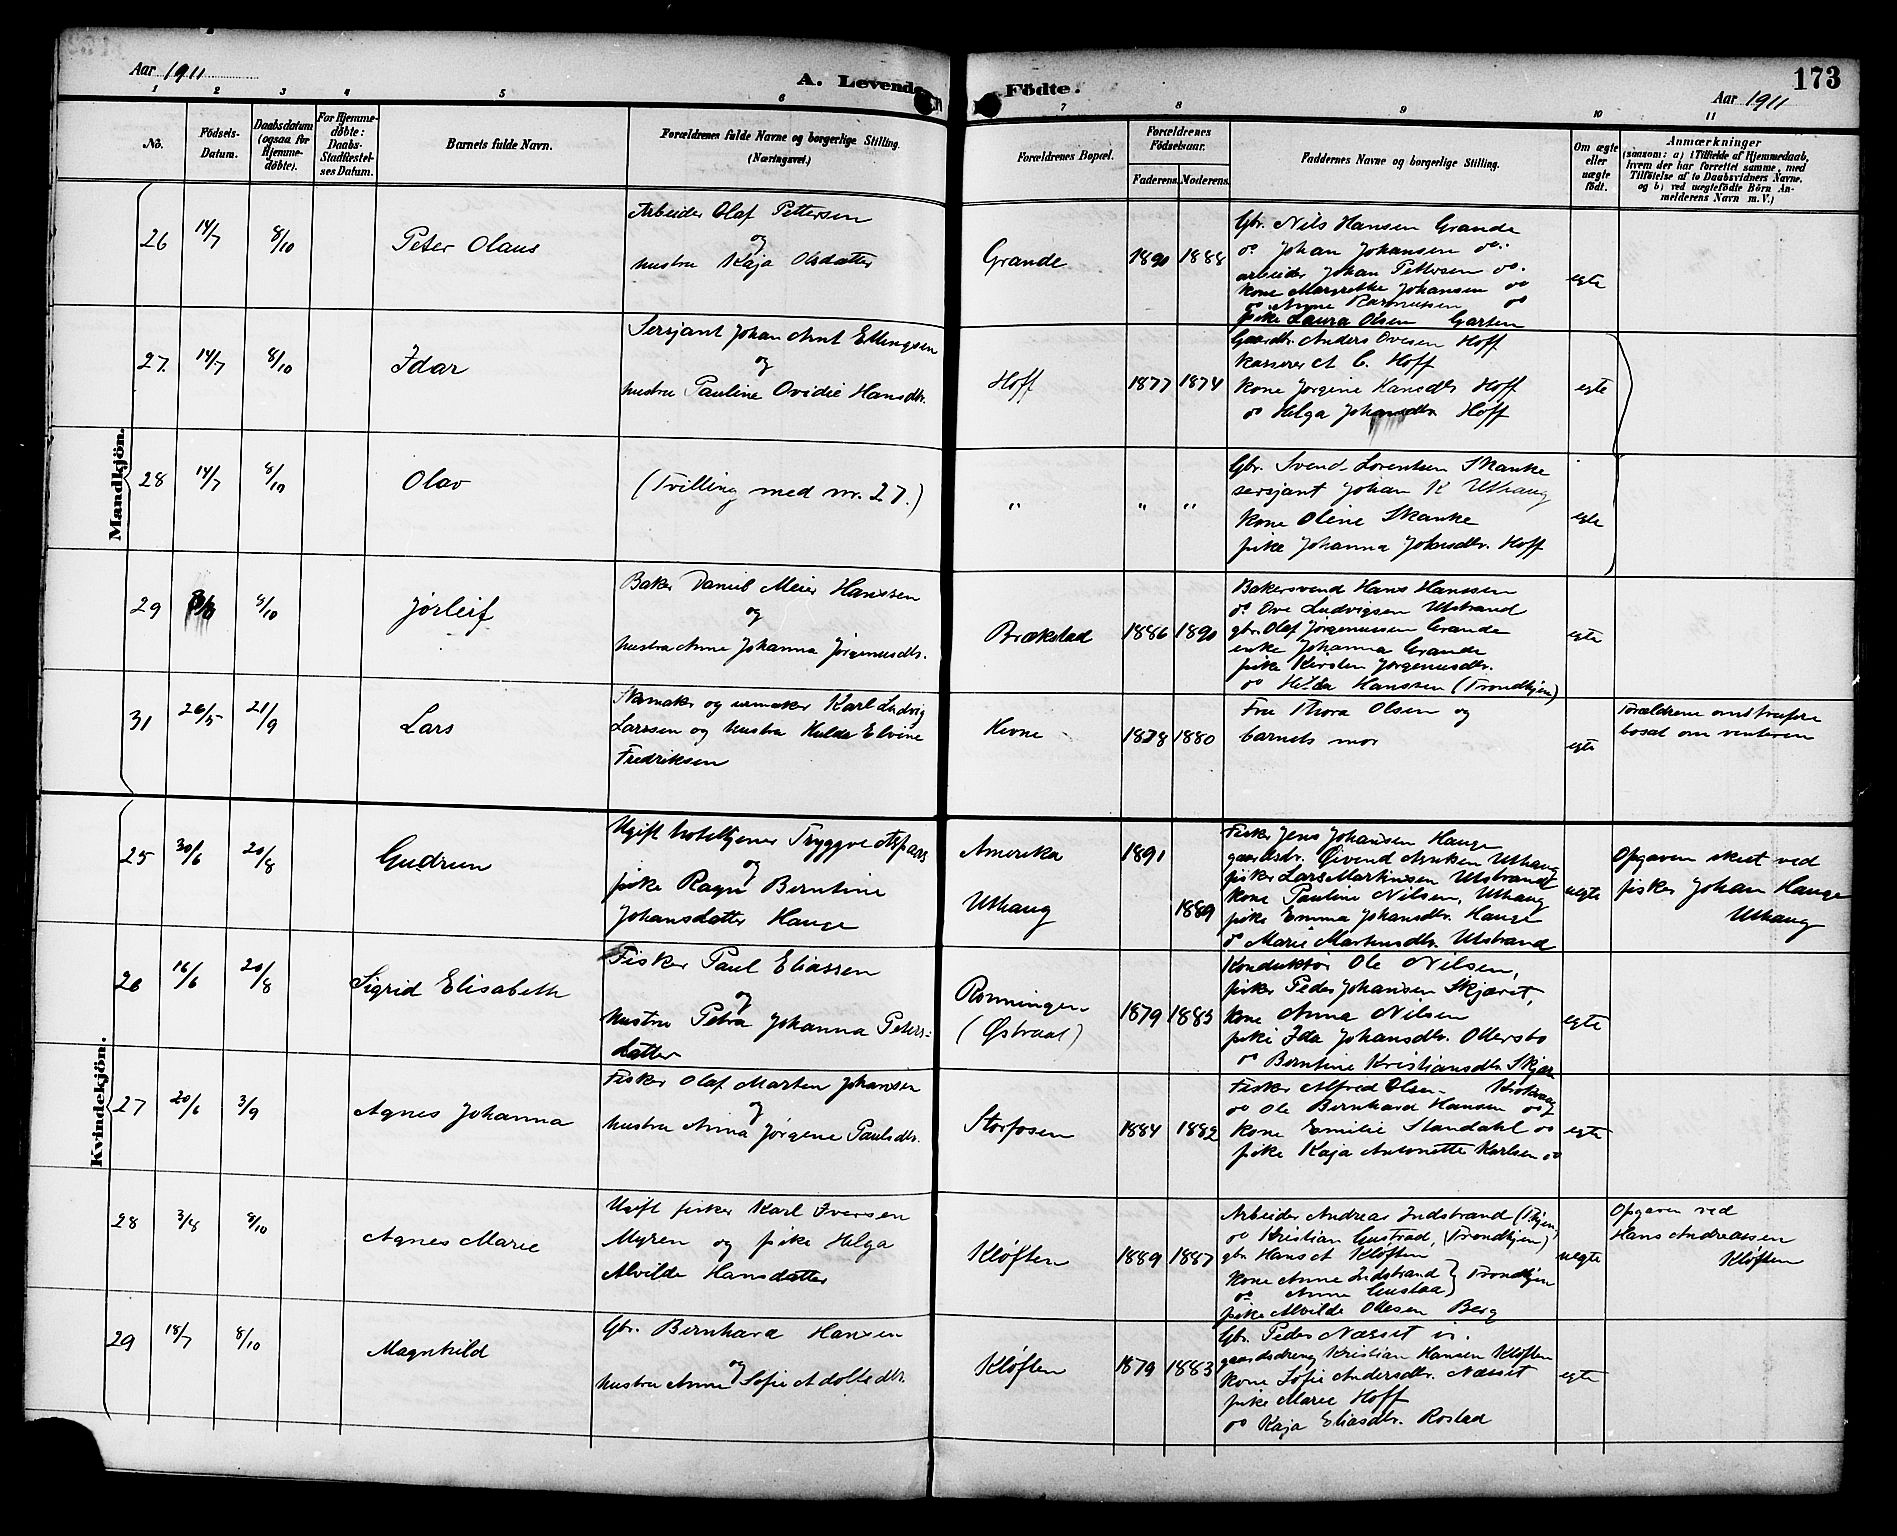 Aar 1911
A. Levende Födte.
173
Aar 1911
1 2 3 4 5 6 7 8 9 10 11
No.
Födsels-Datum.
Daabsdatum (ogsaa for Hjemme-døbte).
For Hjemme-døbte: Daabs-Stadfæstel-ses Datum.
Barnets fulde Navn.
Forældrenes fulde Navne og borgerlige Stilling.
(Næringsvei.)
Forældrenes Bopæl.
Forældrenes Födselsaar.
Faderens. Moderens.
Faddernes Navne og borgerlige Stilling.
Om ægte eller uægte födt.
Anmærkninger
(saasom: a) i Tilfælde af Hjemmedaab, hvem der har forrettet samme, med Tilföielse af to Daabsvidners Navne. og b) ved uægtefödte Börn Anmelderens Navn m. V.)
Mandkjön.
26 14/7 8/10 Peter Olaus
Arbeider Olaf Pettersen
og
hustru Kaja Olsdatter
Grande 1890 1888
Gbr. Nils Hansen Grande
do Johan Johansen do.
arbeider Johan Pettersen do.
kone Margrethe Johansen do
do Anne Rasmussen do
pike Laura Olsen Garten
egte
27. 14/7 8/10 Idar
Sersjant Johan Arnt Ellingsen
og
hustru Pauline Ovidie Hansdtr.
Hoff 1877 1874
Gaardbr. Anders Ovesen Hoff
kasserer A C. Hoff
kone Jørgine Hansdtr Hoff
do Helga Johansdtr. Hoff
egte
28 14/7 8/10 Olav
(Tvilling med nr. 27.)
" " "
Gbr. Svend Lorentsen Skanke
sersjant Johan K Uthaug
kone Oline Skanke
pike Johanna Johnsdtr. Hoff
egte
29 8/10 Jørleif
Baker Daniel Meier Hanssen
og
hustru Anne Johanna Jørgensdtr.
Brækstad 1886 1890
Bakersvend Hans Hanssen
do Ove Ludvigsen Ulstrand
gbr. Olaf Jørgenussen Grande
enke Johanna Grande
pike Kirsten Jørgenusdtr.
do Hilda Hanssen (Trondhjem)
egte
31 26/5 21/9 Lars
Skomaker og urmaker Karl Ludvig
Larssen og hustru Hulda Elvine
Fredriksen
Hevne 1878 1880
Fru Thora Olsen og
barnets mor
egte
Forældrene omstreifere
bosat om vinteren
Kvindekjön.
25 30/6 20/8 Gudrun
Ugift hotelltjener Tryggve Aspaas
og
pike Ragna Berntine
Johansdatter Hauge
Amerika 1891
Uthaug 1889
Fisker Jens Johansen Hauge
gaardbr. Øivend Arntsen Uthaug
fisker Lars Martinsen Ulstrand
kone Pauline Nilsen, Uthaug
pike Emma Johansdtr. Hauge
do Marie Martinusdtr. Ulstrand
uegte
Opgaven skeet ved
fisker Johan Hauge
Uthaug
26 16/6 20/8 Sigrid Elisabeth
Fisker Paul Eliassen
og
hustru Petra Johanna Peters-
datter
Rønningen
(Østraat)
1879 1883
Konduktør Ole Nilsen,
fisker Peder Johansen Skjæret,
kone Anna Nilsen
pike Ida Johansdtr. Ottersbo
do Berntine Kristiansdtr. Skjær
egte
27 20/6 3/9 Agnes Johanna
Fisker Olaf Marten Johansen
og
hustru Anna Jørgine Paulsdtr.
Storfosen 1884 1882
Fisker Alfred Olsen
do Ole Bernhard Hansen do
kone Emilie Standahl do
pike Kaja Antonette Karlsen do
egte
28 3/8 8/10 Agnes Marie
Ugift fisker Karl Iversen
Myren og pike Helga
Alvilde Hansdatter
Kløften 1889 1887
Arbeider Andreas Indstrand
do Kristian Gustad, (Trondhjem)
gbr. Hans A Kløften
kone Anne Indstrand } Trondhjem
do Anna Gustad
pike Alvilde Ottesen Berg
uegte
Opgaven ved
Hans Andreassen
Kløften
29 18/7 8/10 Magnhild
Gbr. Bernhard Hansen
og
hustru Anne Sofie Adolfsdtr.
Kløften 1879 1883
Gbr. Peder Næsset
gaardsdreng Kristian Hansen Kløften
kone Sofie Andersdtr. Næsset
pike Marie Hoff
do Kaja Eliasdtr. Rostad
egte